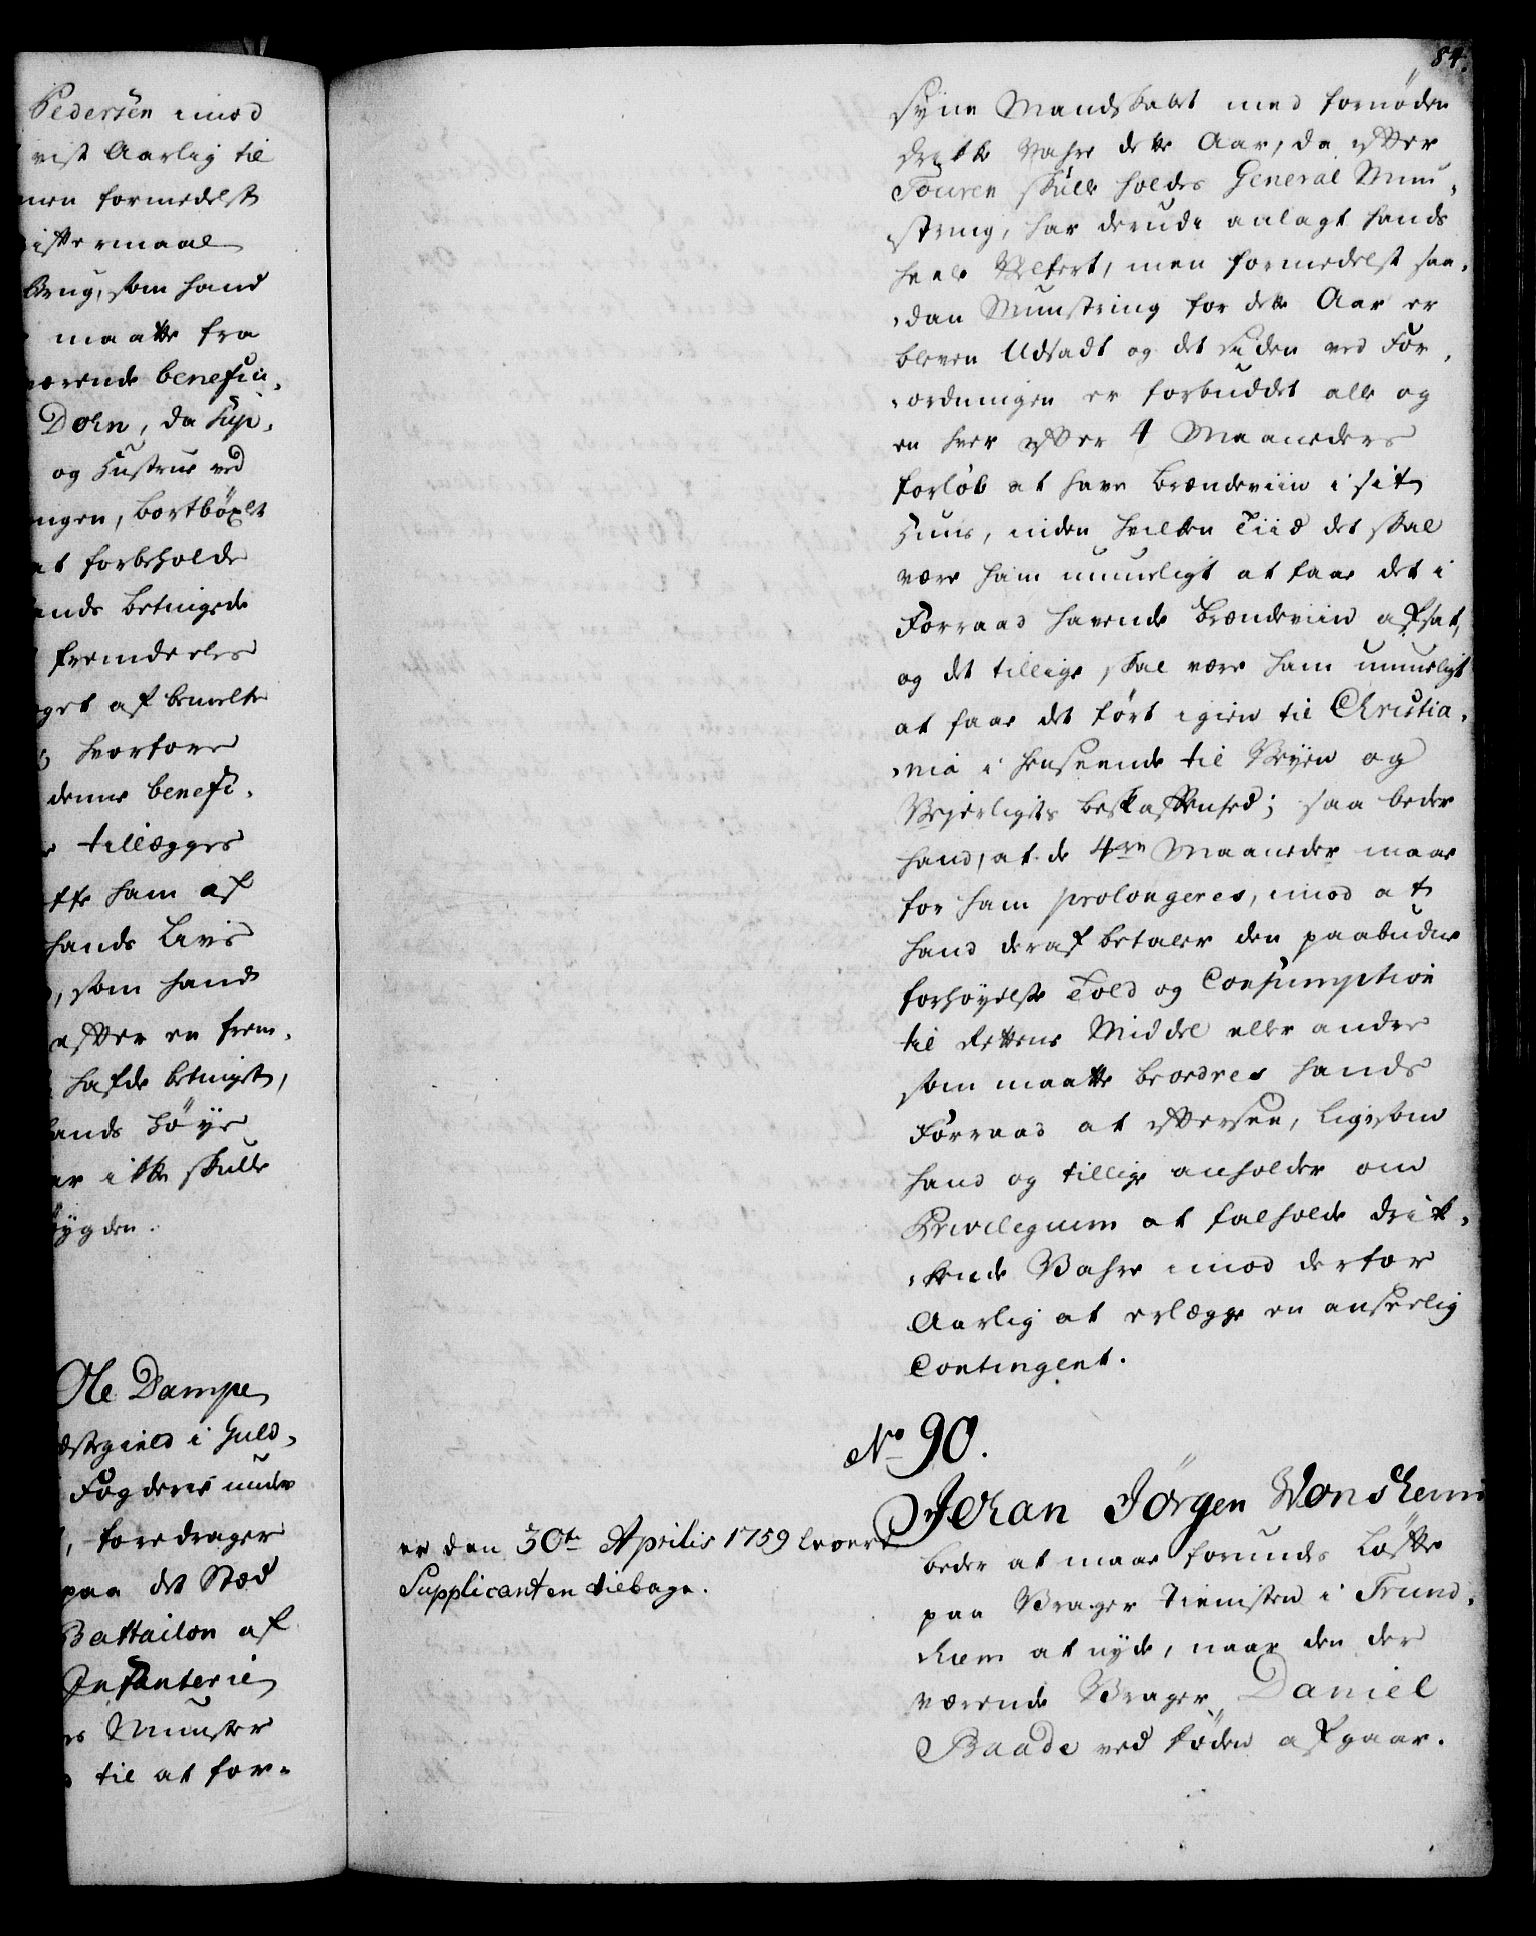 Pedersen imod
vist Aarlig til
men formedelst
istermaal
Brug, som hand
maatte fra
værende benefici,
Dorn, da Sup,
og Hustrue ved
ingen, bortböxlet
at forbeholde
hands betingede
fremdeeles
get af bemelte
hvorfore
denne benefi,
tillægges
tte ham af
hands Livs
, som hand
efter en frem,
hafde betinget,
hands Höye
ar ikke skulle
bygden.
Ole Dampe
æstegield i Guld,
Fogderie under
, foredrager
paa det Sted
Battailon af
Infanterie
Munster
til at for,
84.
syne Mandskabet med fornöden
drikke Vahre dette Aar, da efter
Touren skulle holdes General Mun,
,string, har derudi anlagt hands
heele Velfert, men formedelst saa,
,dan Munstring for dette Aar er
bleven Udsadt og det siden ved For,
,ordningen er forbuddet alle og
en hver efter 4 Maaneders
forlöb at have Brændeviin i sit
Huus, inden hvilken Tiid det skal
være ham umueligt at faae det i
Forraad havende Brændeviin afsat,
og det tillige skal være ham umueligt
at faae det fört igien til Christia,
,nia i henseende til Veyen og
Vejerligets beskaffenhed; saa beder
hand, at de 4re Maaneder maae
for ham prolongeres, imod at
hand deraf betaler den paabudne
forhöyelse Told og Consumption
til Rettens Middel eller andre
som maatte beordres hands
Forraad at eftersee, ligesom
hand og tillige anholder om
Privilegium at falholde drik,
,kende Vahre imod derfor
Aarlig at erlægge en anseelig
Contingent.
No 90.
Johan Jörgen Wonshem
beder at maae forundes Löfte
paa Vrager tienisten i Trund,
,hiem at nyde, naar den der
værende Vrager Daniel
Baade ved döden afgaar.
er den 30te Aprilis 1759 leveret
Supplicanten tilbage.